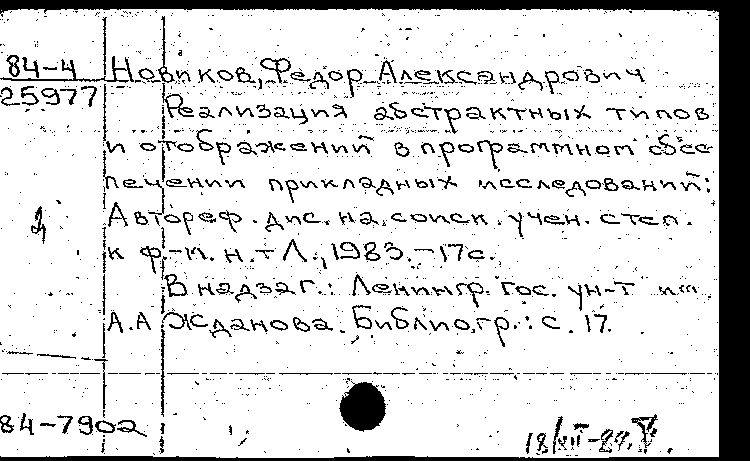 84-4 Новиков, Федор Александрович
25977 Реализация абстрактных типов
и отображений в программном обес-
печении прикладных исследований:
Автореф. дис. на соиск. учен. степ.
к ф.-м. н. - Л., 1983. - 17с.
В надзаг.: Ленингр. гос. ун-т им.
А.А Жданова. Библиогр.: с. 17.
84-7902